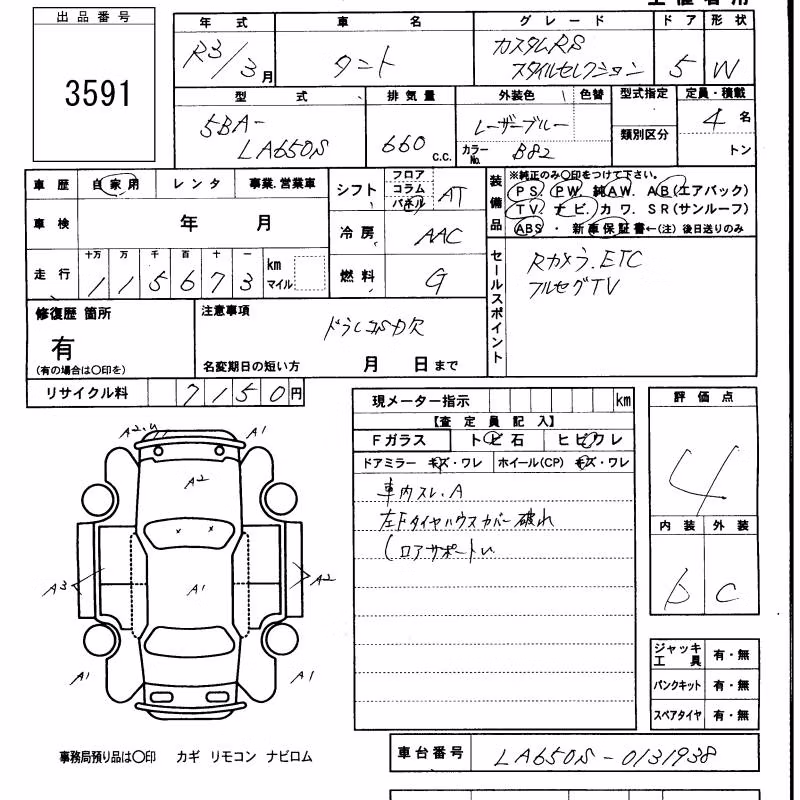 出品番号
3591
年式 車名 グレード ドア 形状
R3/3月 タント カスタムRS スタイルセレクション 5 W
型式 排気量 外装色 色替 型式指定 定員・積載
5BA-LA650S 660 C.C. レーザーブルー 4名
カラーNo. B82 類別区分 トン
車歴 自家用 レンタ 事業.営業車
シフト フロア コラム パネル AT
装備品 ※純正のみ〇印をつけて下さい。
PS. PW. 純AW. AB(エアバック)
TV. ナビ. カワ. SR(サンルーフ)
ABS ・ 新車保証書←(注)後日送りのみ
車検 年 月
冷房 AAC
走行 十万 万 千 百 十 一 km マイル
1 1 5 6 7 3
燃料 G
セールスポイント
Rカメラ.ETC
フルセグTV
修復歴 箇所
有
(有の場合は〇印を)
注意事項
名変期日の短い方 月 日まで
リサイクル料 7150円
現メーター指示 km
【査定員記入】
Fガラス トビ石 ヒビワレ
ドアミラー キズ・ワレ ホイール(CP) キズ・ワレ
車内スレ.A
左Fタイヤハウスカバー破れ
ロアサポートU
評価点
4
内装 外装
b C
A1
A2
A1
A3
A2
A1
A1
ジャッキ工具 有・無
パンクキット 有・無
スペアタイヤ 有・無
事務局預り品は〇印 カギ リモコン ナビロム
車台番号 LA650S-0131938